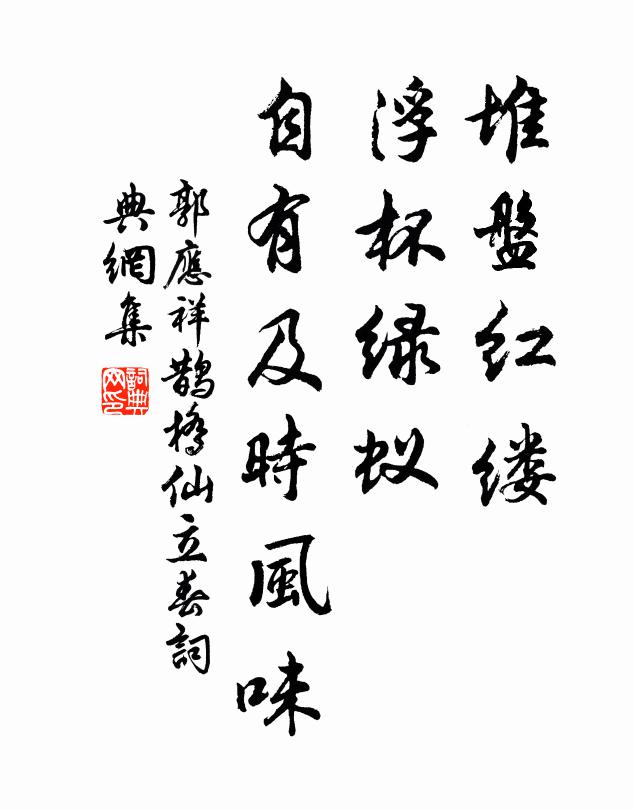 堆盤红缕
浮杯绿蚁
自有及時風味
郭應祥鹊橋仙立春詞
典網集
詞典
网印